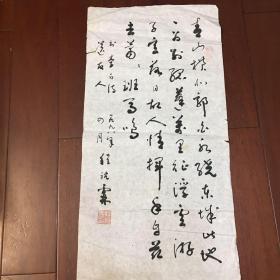 青山横北郭白水绕东城此地
一为别孤蓬万里征浮云游
子意落日故人情挥手自兹
去萧萧班马鸣
书李白诗
送友人
一九九一年
四月